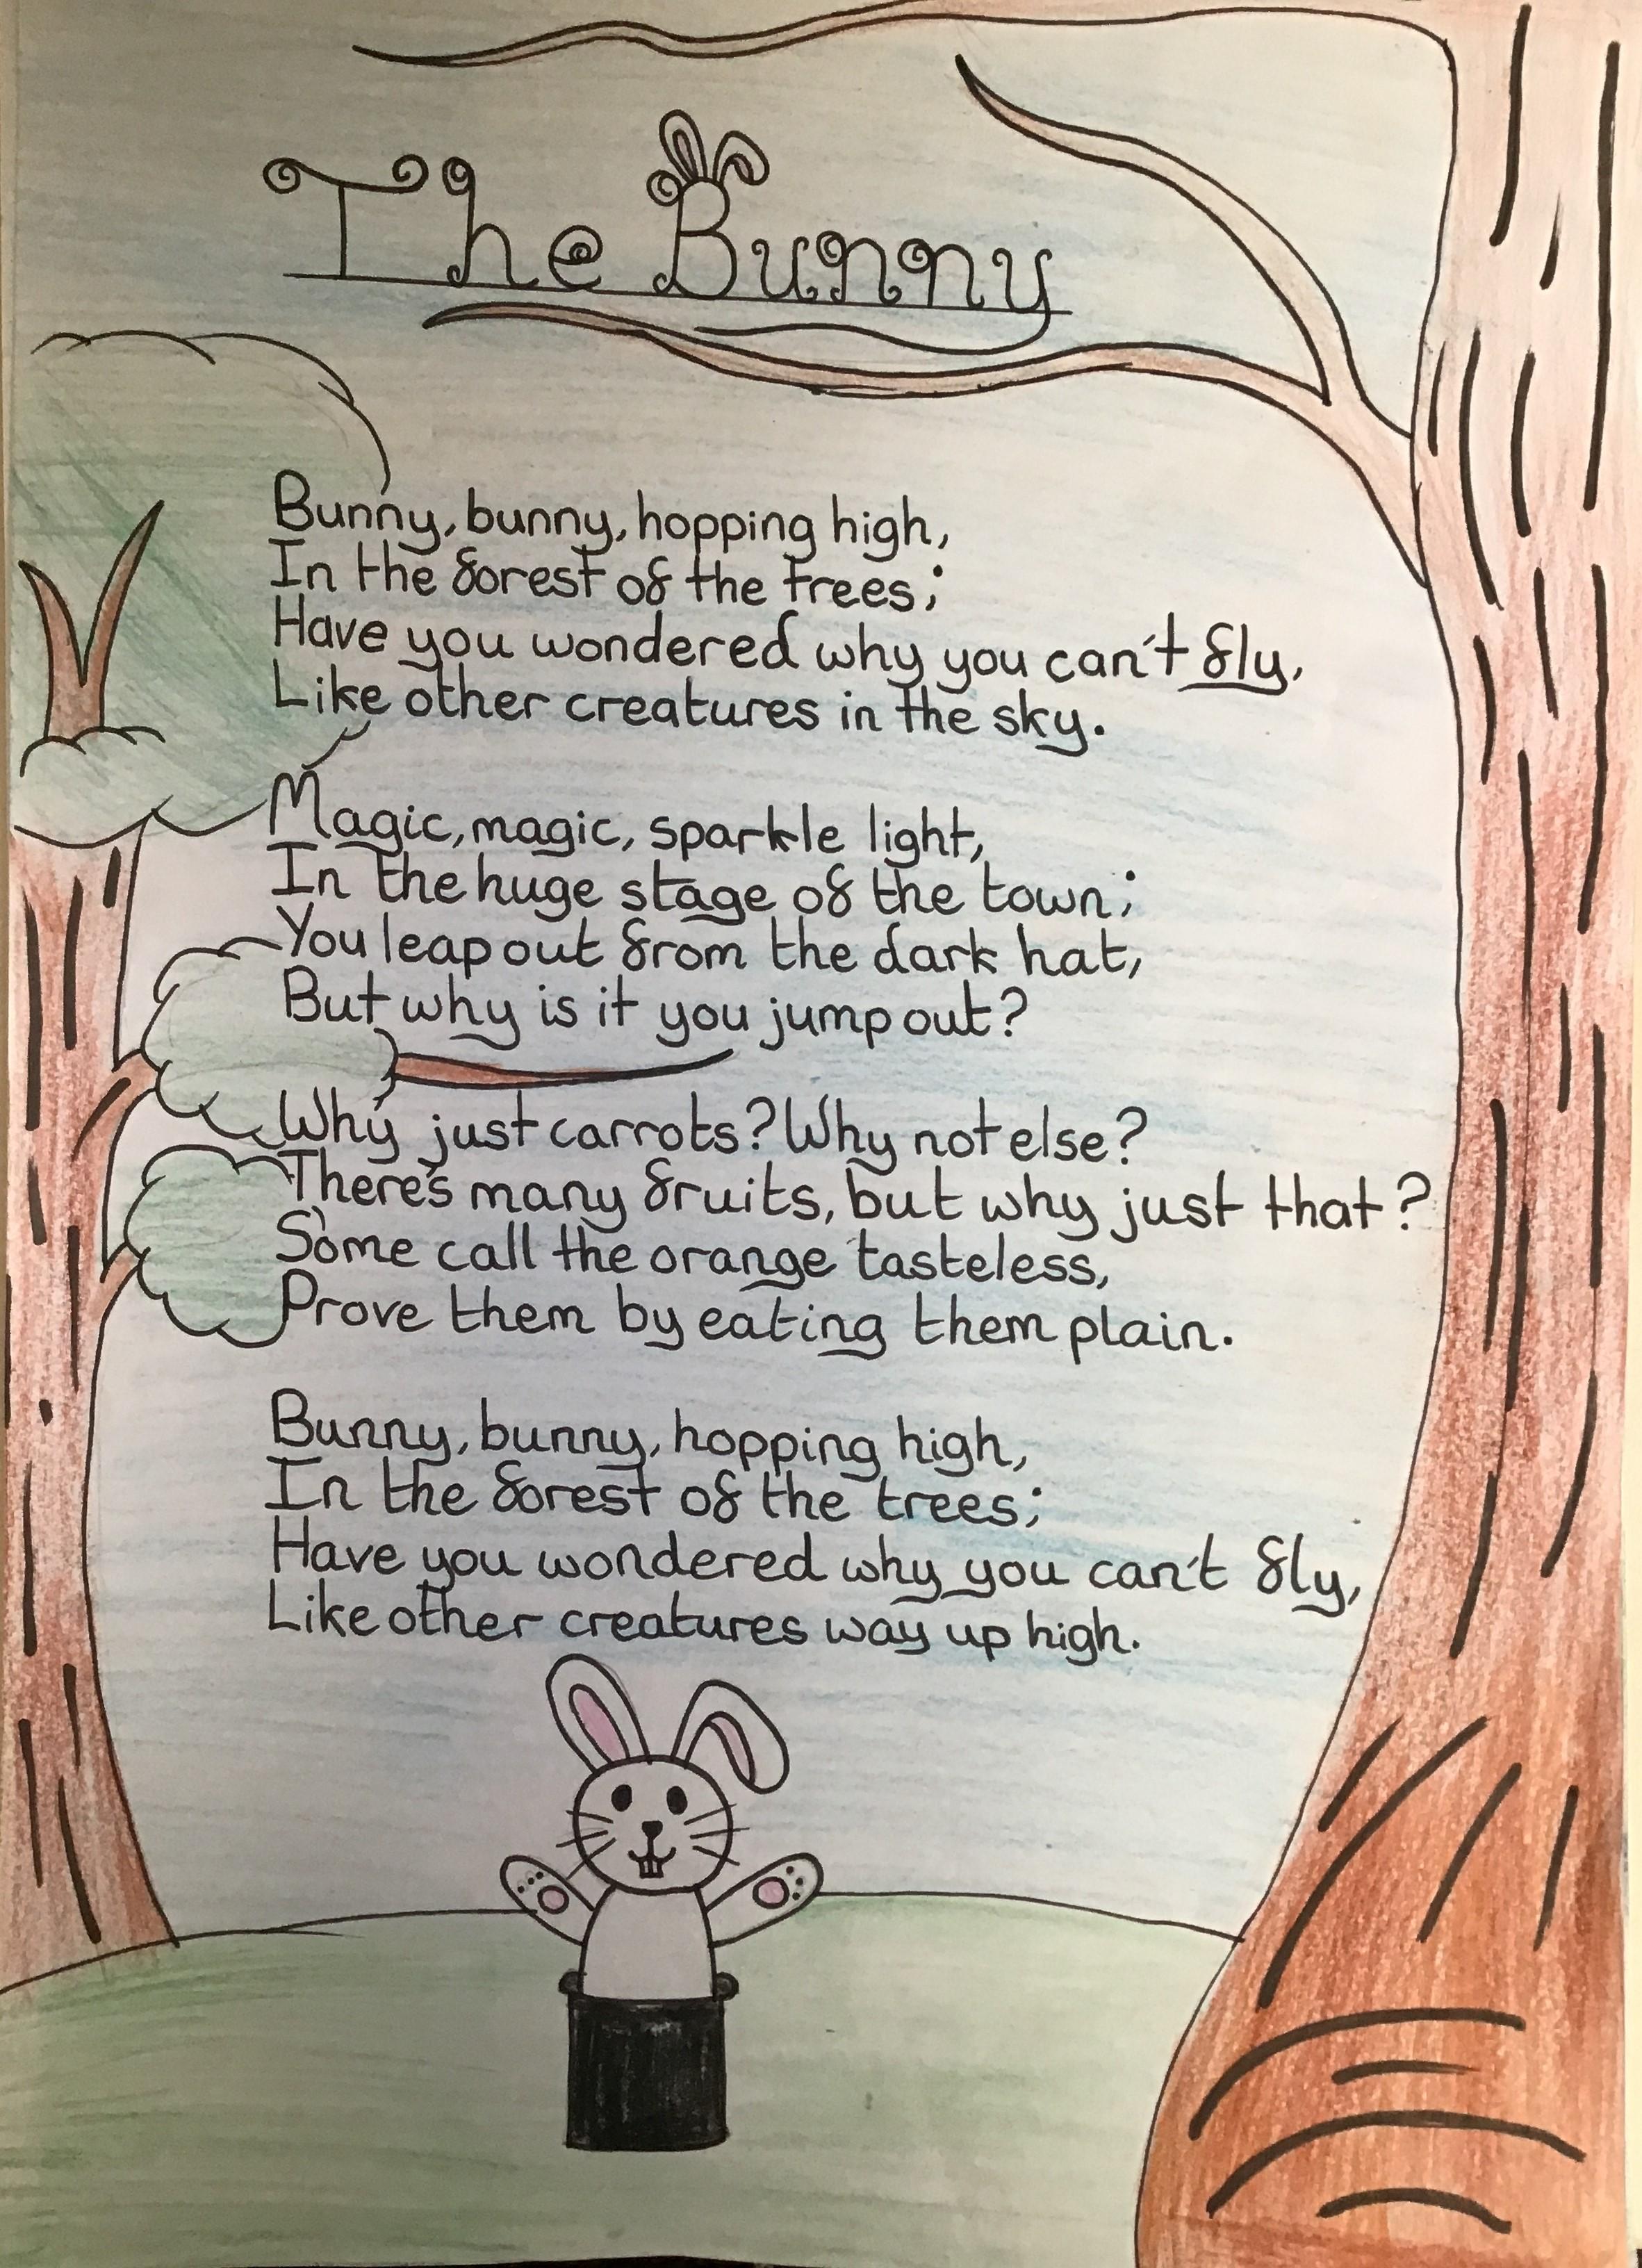 The Bunny
Bunny, bunny, hopping high,
In the forest of the trees;
Have you wondered why you can't fly,
Like other creatures in the sky.
Magic, magic, sparkle light,
In the huge stage of the town;
You leap out from the dark hat,
But why is it you jump out?
Why just carrots? Why not else?
There's many fruits, but why just that?
Some call the orange tasteless,
Prove them by eating them plain.
Bunny, bunny, hopping high,
In the forest of the trees;
Have you wondered why you can't fly,
Like other creatures way up high.